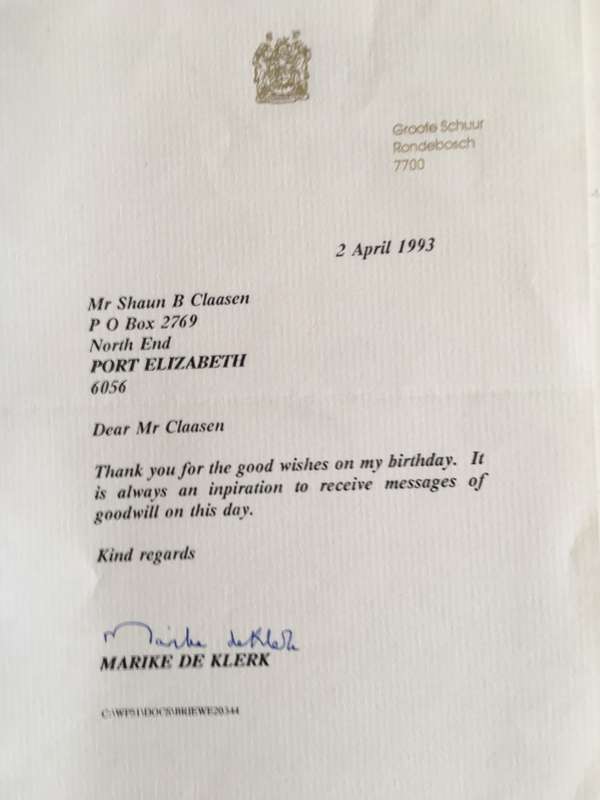 Groote Schuur
Rondebosch
7700
2 April 1993
Mr Shaun B Claasen
P O Box 2769
North End
PORT ELIZABETH
6056
Dear Mr Claasen
Thank you for the good wishes on my birthday. It
is always an inpiration to receive messages of
goodwill on this day.
Kind regards
Marike de Klerk
MARIKE DE KLERK
C:\WP51\DOCS\BRIEWE20344